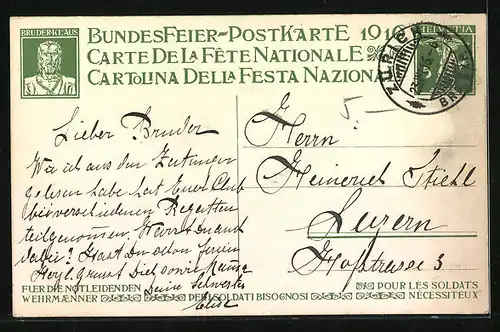 BRUDER·KLAUS
BUNDESFEIER-POSTKARTE 1916
CARTE DE LA FÊTE NATIONALE
CARTOLINA DELLA FESTA NAZIONALE
HELVETIA
ZÜRICH
5.–
Lieber Bruder
Wie ich aus den Zeitungen
gelesen habe hat Euer Club
bei verschiedenen Regatten
teilgenommen. Warst du auch
dabei? Hast Du schon Ferien
Herzl. grüsst Dich sowie
Deine Schwester
Elise
Herrn
Heinrich Stiehl
Luzern
Hofstrasse 3
FUER DIE NOTLEIDENDEN
WEHRMÆNNER
PER I SOLDATI BISOGNOSI
POUR LES SOLDATS
NÉCESSITEUX